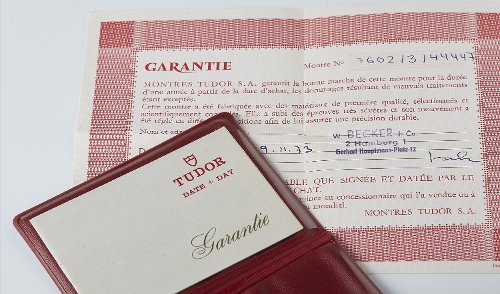 GARANTIE
Montre No 7602/3/44447
MONTRES TUDOR S.A. garantit la bonne marche de cette montre pour la durée
d'une année à partir de la date d'achat, les dommages résultant de mauvais traitements
étant exceptés.
Cette montre a été fabriquée avec des matériaux de première qualité, sélectionnés et
scientifiquement Elle a subi des épreuves très sévères et son mouvement a
été réglé en afin de lui assurer une précision durable.
Nom et
W BECKER + Co
2 Hamburg 1
Gerhart Hauptmann-Platz 12
9.11.73
ABLE QUE SIGNÉE ET DATÉE PAR LE
ACHAT.
au concessionnaire qui l'a vendue ou à
mondial.
MONTRES TUDOR S.A.
TUDOR
DATE + DAY
Garantie